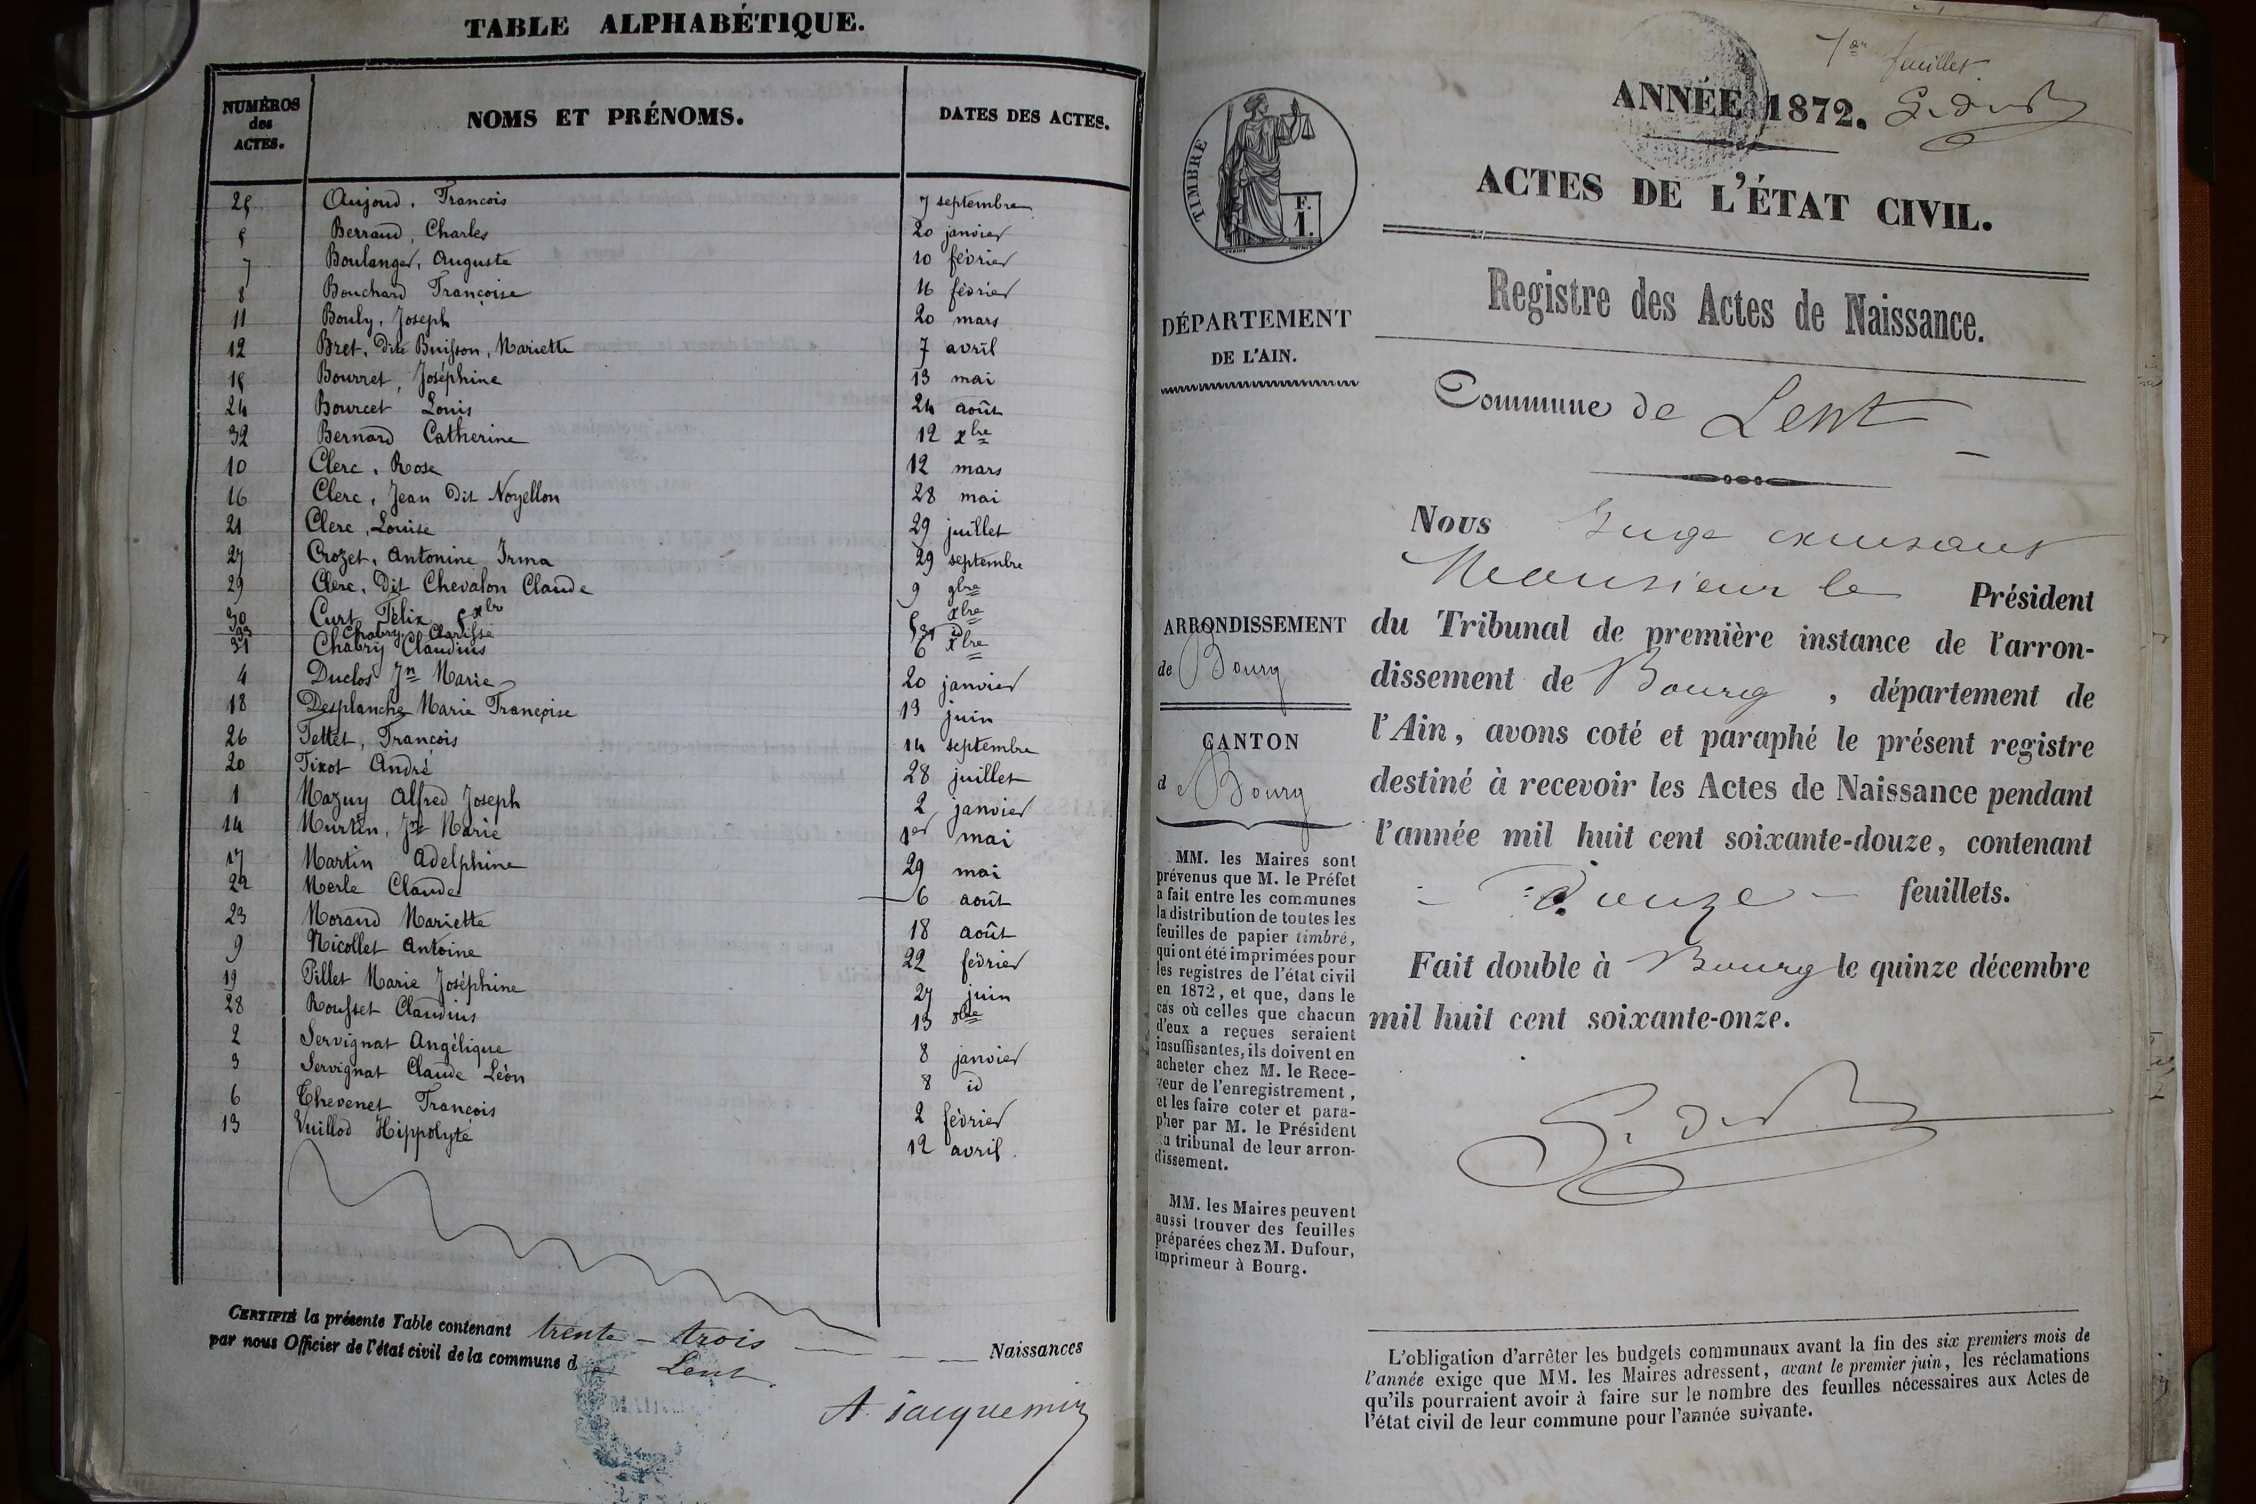 TABLE ALPHABÉTIQUE.
NUMÉROS des ACTES. NOMS ET PRÉNOMS. DATES DES ACTES.
25 Aujoud, Francois 7 septembre
5 Berraud, Charles 20 janvier
7 Boulanger, Auguste 10 février
8 Bouchard Françoise 16 février
11 Bouly, Joseph 20 mars
12 Bret, dite Buisson, Mariette 7 avril
15 Bourret, Joséphine 13 mai
24 Bourcet Louis 24 août
32 Bernard Catherine 12 xbre
10 Clerc, Rose 12 mars
16 Clerc, Jean dit Noyellon 28 mai
21 Clerc, Louise 29 juillet
27 Crozet, Antonine Irma 29 septembre
29 Clerc, Dit Chevalon Claude 9 9bre
30 Curt Félix 5 xbre 5 xbre
33 Chabry Clarisse 31 id
31 Chabry Claudius 6 xbre
4 Duclos Jn Marie 20 janvier
18 Desplanche Marie Françoise 13 juin
26 Fettet, Francois 14 septembre
20 Fixot André 28 juillet
1 Mazuy Alfred Joseph 2 janvier
14 Murtin, Jn Marie 1er mai
17 Martin Adelphine 29 mai
22 Merle Claude 6 août
23 Morand Mariette 18 août
9 Nicollet Antoine 22 février
19 Pillet Marie Joséphine 27 juin
28 Rousset Claudius 13 8bre
2 Servignat Angélique 8 janvier
3 Servignat Claude Léon 8 id
6 Thevenet François 2 février
13 Vuillod Hippolyte 12 avril
CERTIFIÉ la présente Table contenant trente-trois Naissances
par nous Officier de l'état civil de la commune de Lent.
MAIRIE
A. Jacquemin
1er feuillet.
ANNÉE 1872.
ACTES DE L'ÉTAT CIVIL.
TIMBRE
F.
1.
Registre des Actes de Naissance.
DÉPARTEMENT
DE L'AIN.
Commune de Lent
ARRONDISSEMENT
de Bourg
CANTON
de Bourg
MM. les Maires sont
prévenus que M. le Préfet
a fait entre les communes
la distribution de toutes les
feuilles de papier timbré,
qui ont été imprimées pour
les registres de l'état civil
en 1872, et que, dans le
cas où celles que chacun
d'eux a reçues seraient
insuffisantes, ils doivent en
acheter chez M. le Rece-
veur de l'enregistrement,
et les faire coter et para-
pher par M. le Président
du tribunal de leur arron-
dissement.
MM. les Maires peuvent
aussi trouver des feuilles
préparées chez M. Dufour,
imprimeur à Bourg.
Nous Juge
Monsieur le Président
du Tribunal de première instance de l'arron-
dissement de Bourg, département de
l'Ain, avons coté et paraphé le présent registre
destiné à recevoir les Actes de Naissance pendant
l'année mil huit cent soixante-douze, contenant
douze feuillets.
Fait double à Bourg le quinze décembre
mil huit cent soixante-onze.
L'obligation d'arrêter les budgets communaux avant la fin des six premiers mois de
l'année exige que MM. les Maires adressent, avant le premier juin, les réclamations
qu'ils pourraient avoir à faire sur le nombre des feuilles nécessaires aux Actes de
l'état civil de leur commune pour l'année suivante.